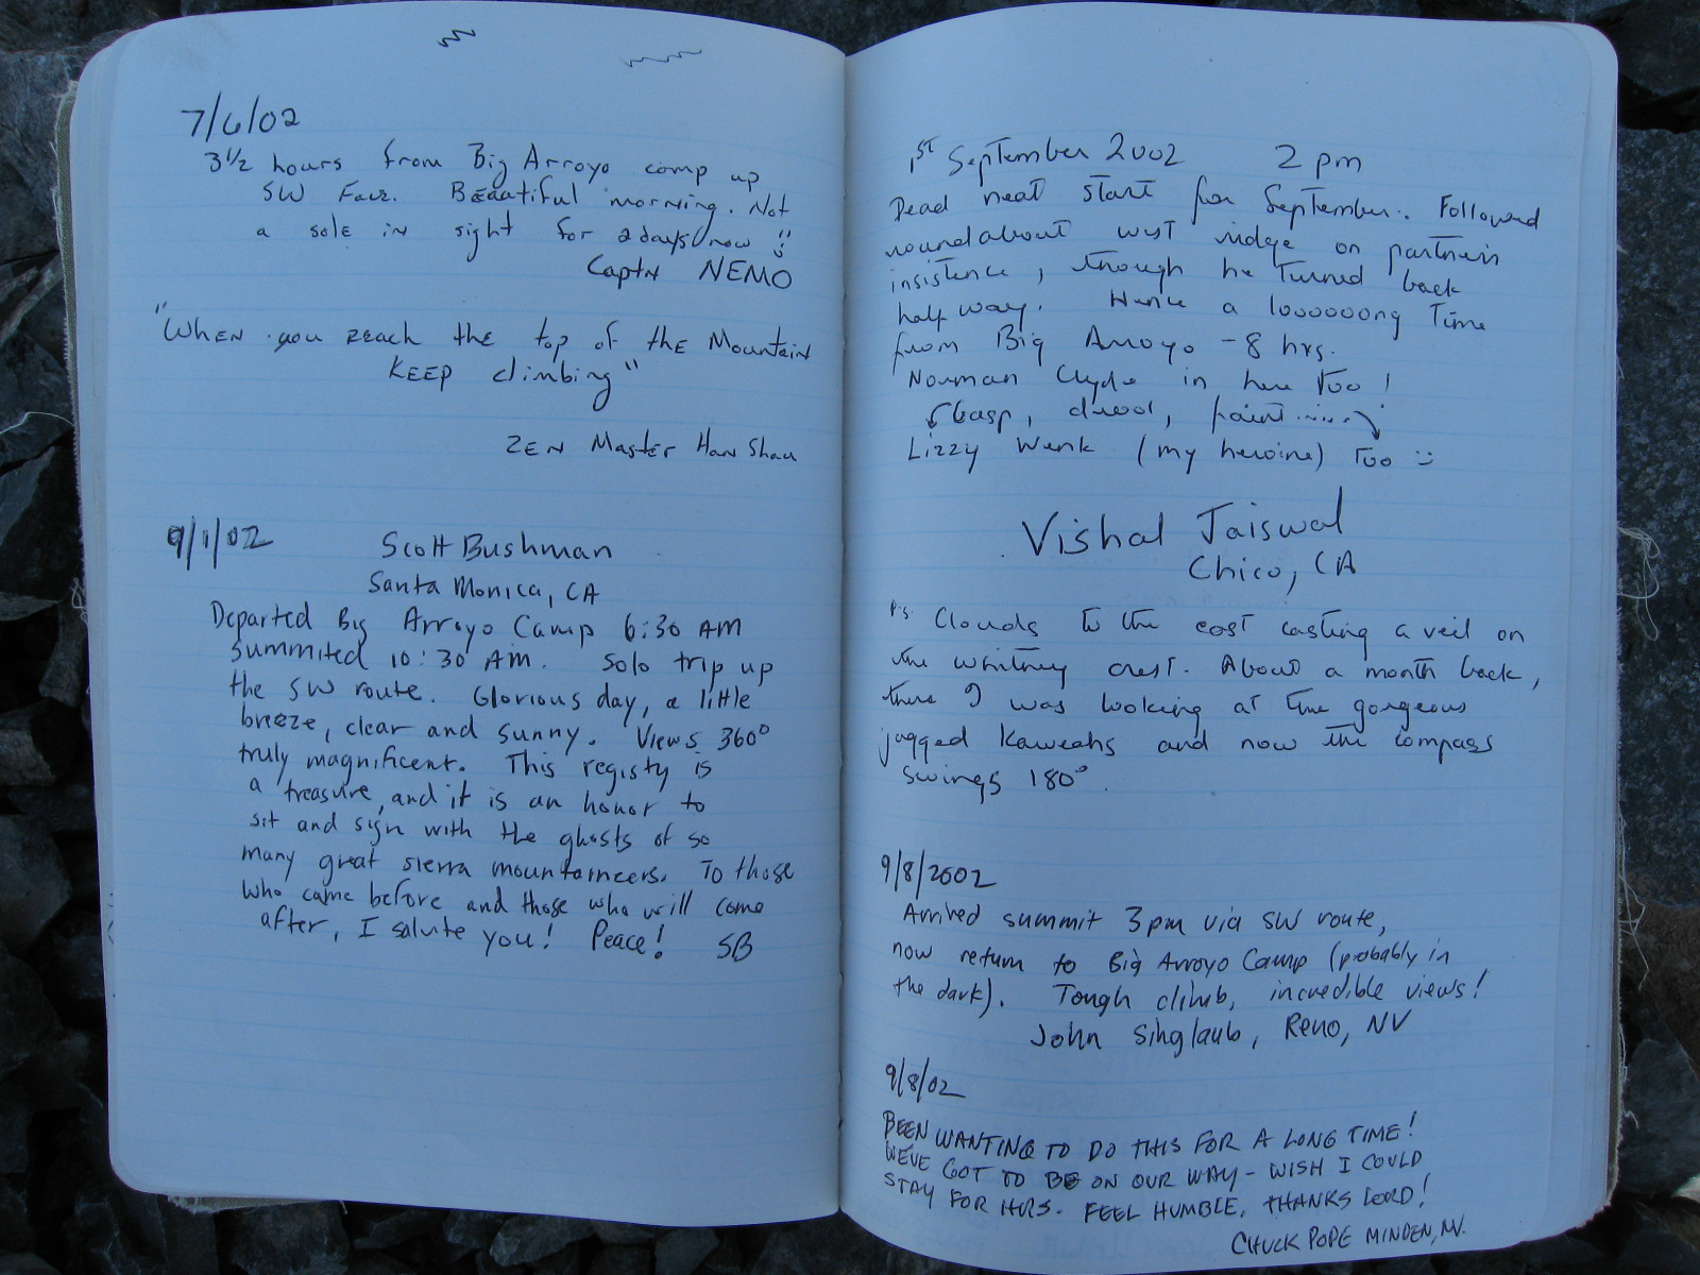 7/6/02
3 1/2 hours from Big Arroyo camp up
SW Face. Beautiful morning. Not
a sole in sight for 2 days now
Captn NEMO
"When you reach the top of the Mountain
KEEP climbing"
ZEN Master Han Shan
9/1/02 Scott Bushman
Santa Monica, CA
Departed Big Arroyo Camp 6:30 AM
Summited 10:30 AM. Solo trip up
the SW route. Glorious day, a little
breeze, clear and sunny. Views 360°
truly magnificent. This registy is
a treasure, and it is an honor to
sit and sign with the ghosts of so
many great sierra mountaineers. To those
who came before and those who will come
after, I salute you! Peace! SB
1ST September 2002 2 pm
Dead neat start for September. Followed
roundabout west ridge on partners
insistence, though he turned back
half way. Hence a loooooong Time
from Big Arroyo - 8 hrs.
Norman Clyde in here too!
Gasp, drool, faint.....
Lizzy Wenk (my heroine) too :)
Vishal Jaiswal
Chico, CA
P.S. Clouds to the east casting a veil on
the whitney crest. About a month back,
there I was looking at the gorgeous
jagged Kaweahs and now the compass
swings 180°.
9/8/2002
Arrived summit 3pm via SW route,
now return to Big Arroyo Camp (probably in
the dark). Tough climb, incredible views!
John Singlaub, Reno, NV
9/8/02
BEEN WANTING TO DO THIS FOR A LONG TIME!
WE'VE GOT TO BE ON OUR WAY - WISH I COULD
STAY FOR HRS. FEEL HUMBLE, THANKS LORD!
CHUCK POPE MINDEN, NV.